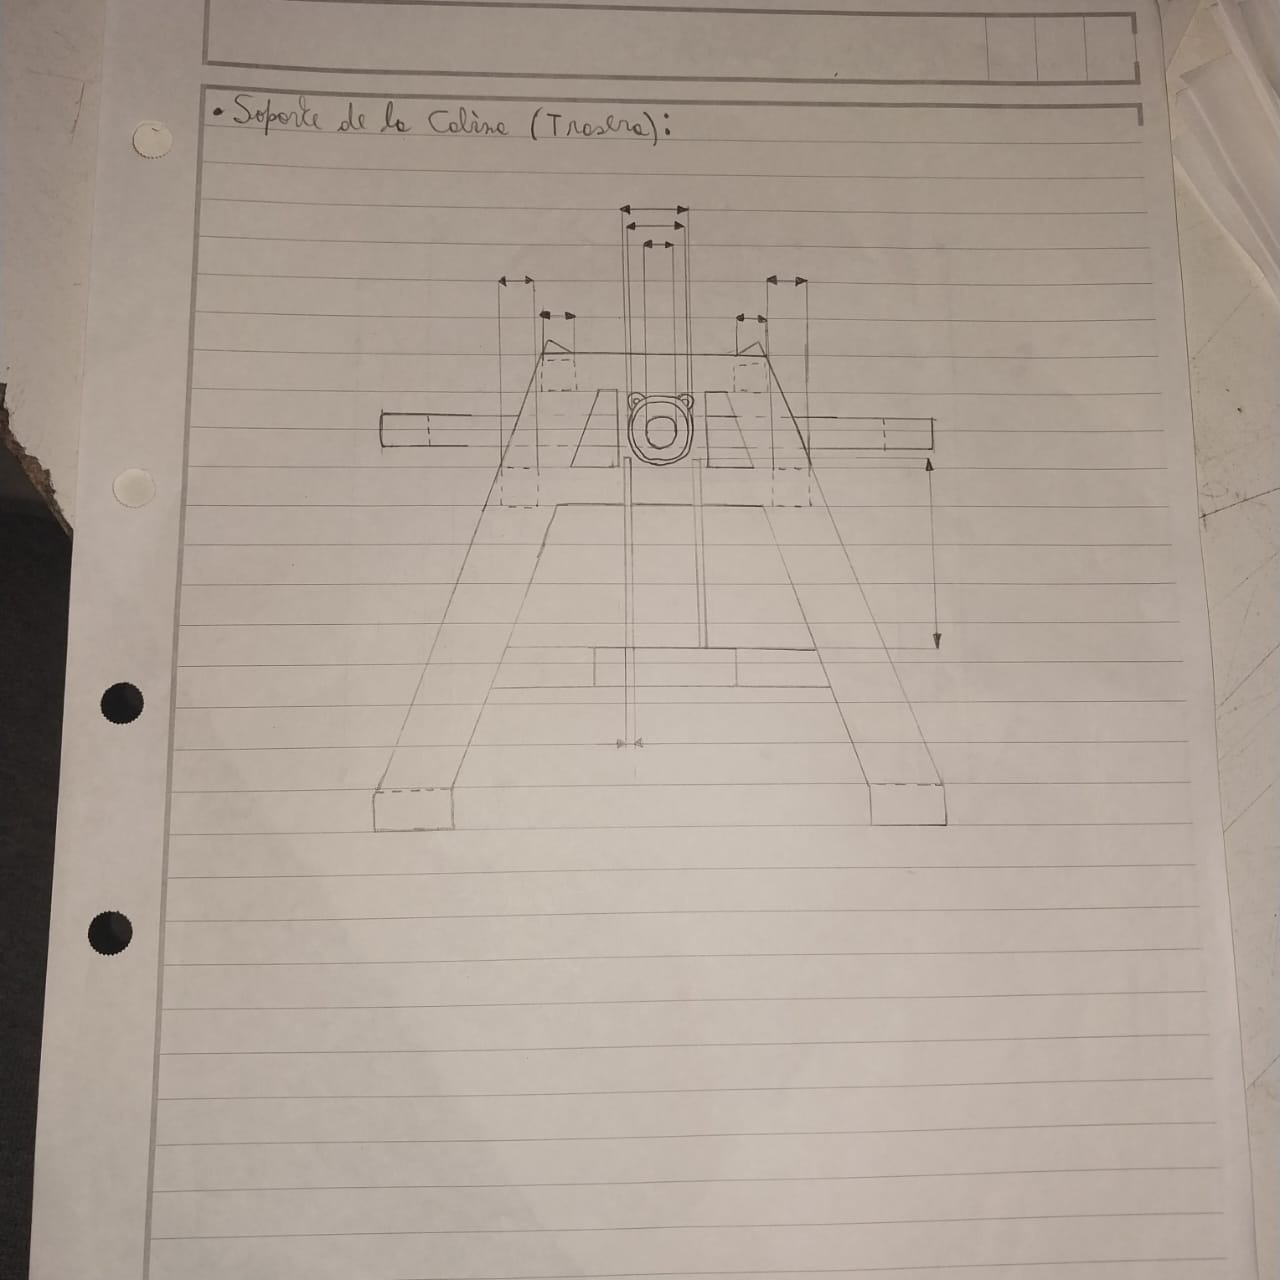 • Soporte de la Cabina (Trasera):